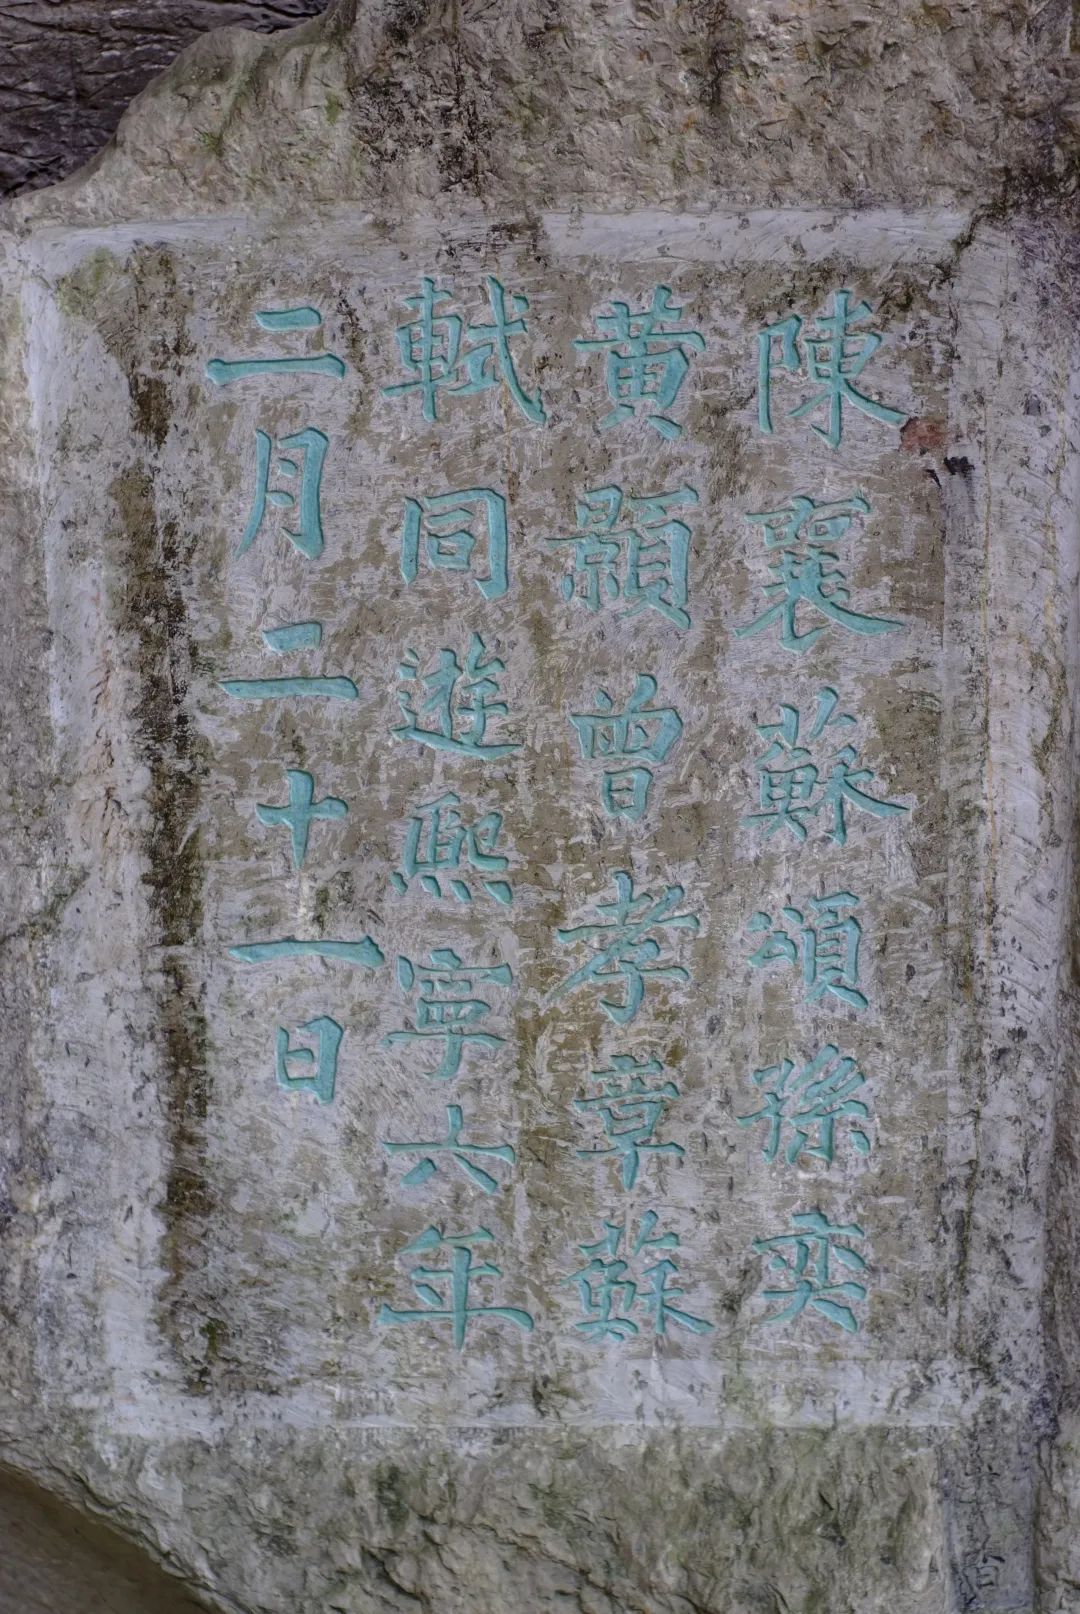 陳襄蘇頌孫奕
黃顥曾孝章蘇
軾同遊熙寧六年
二月二十一日